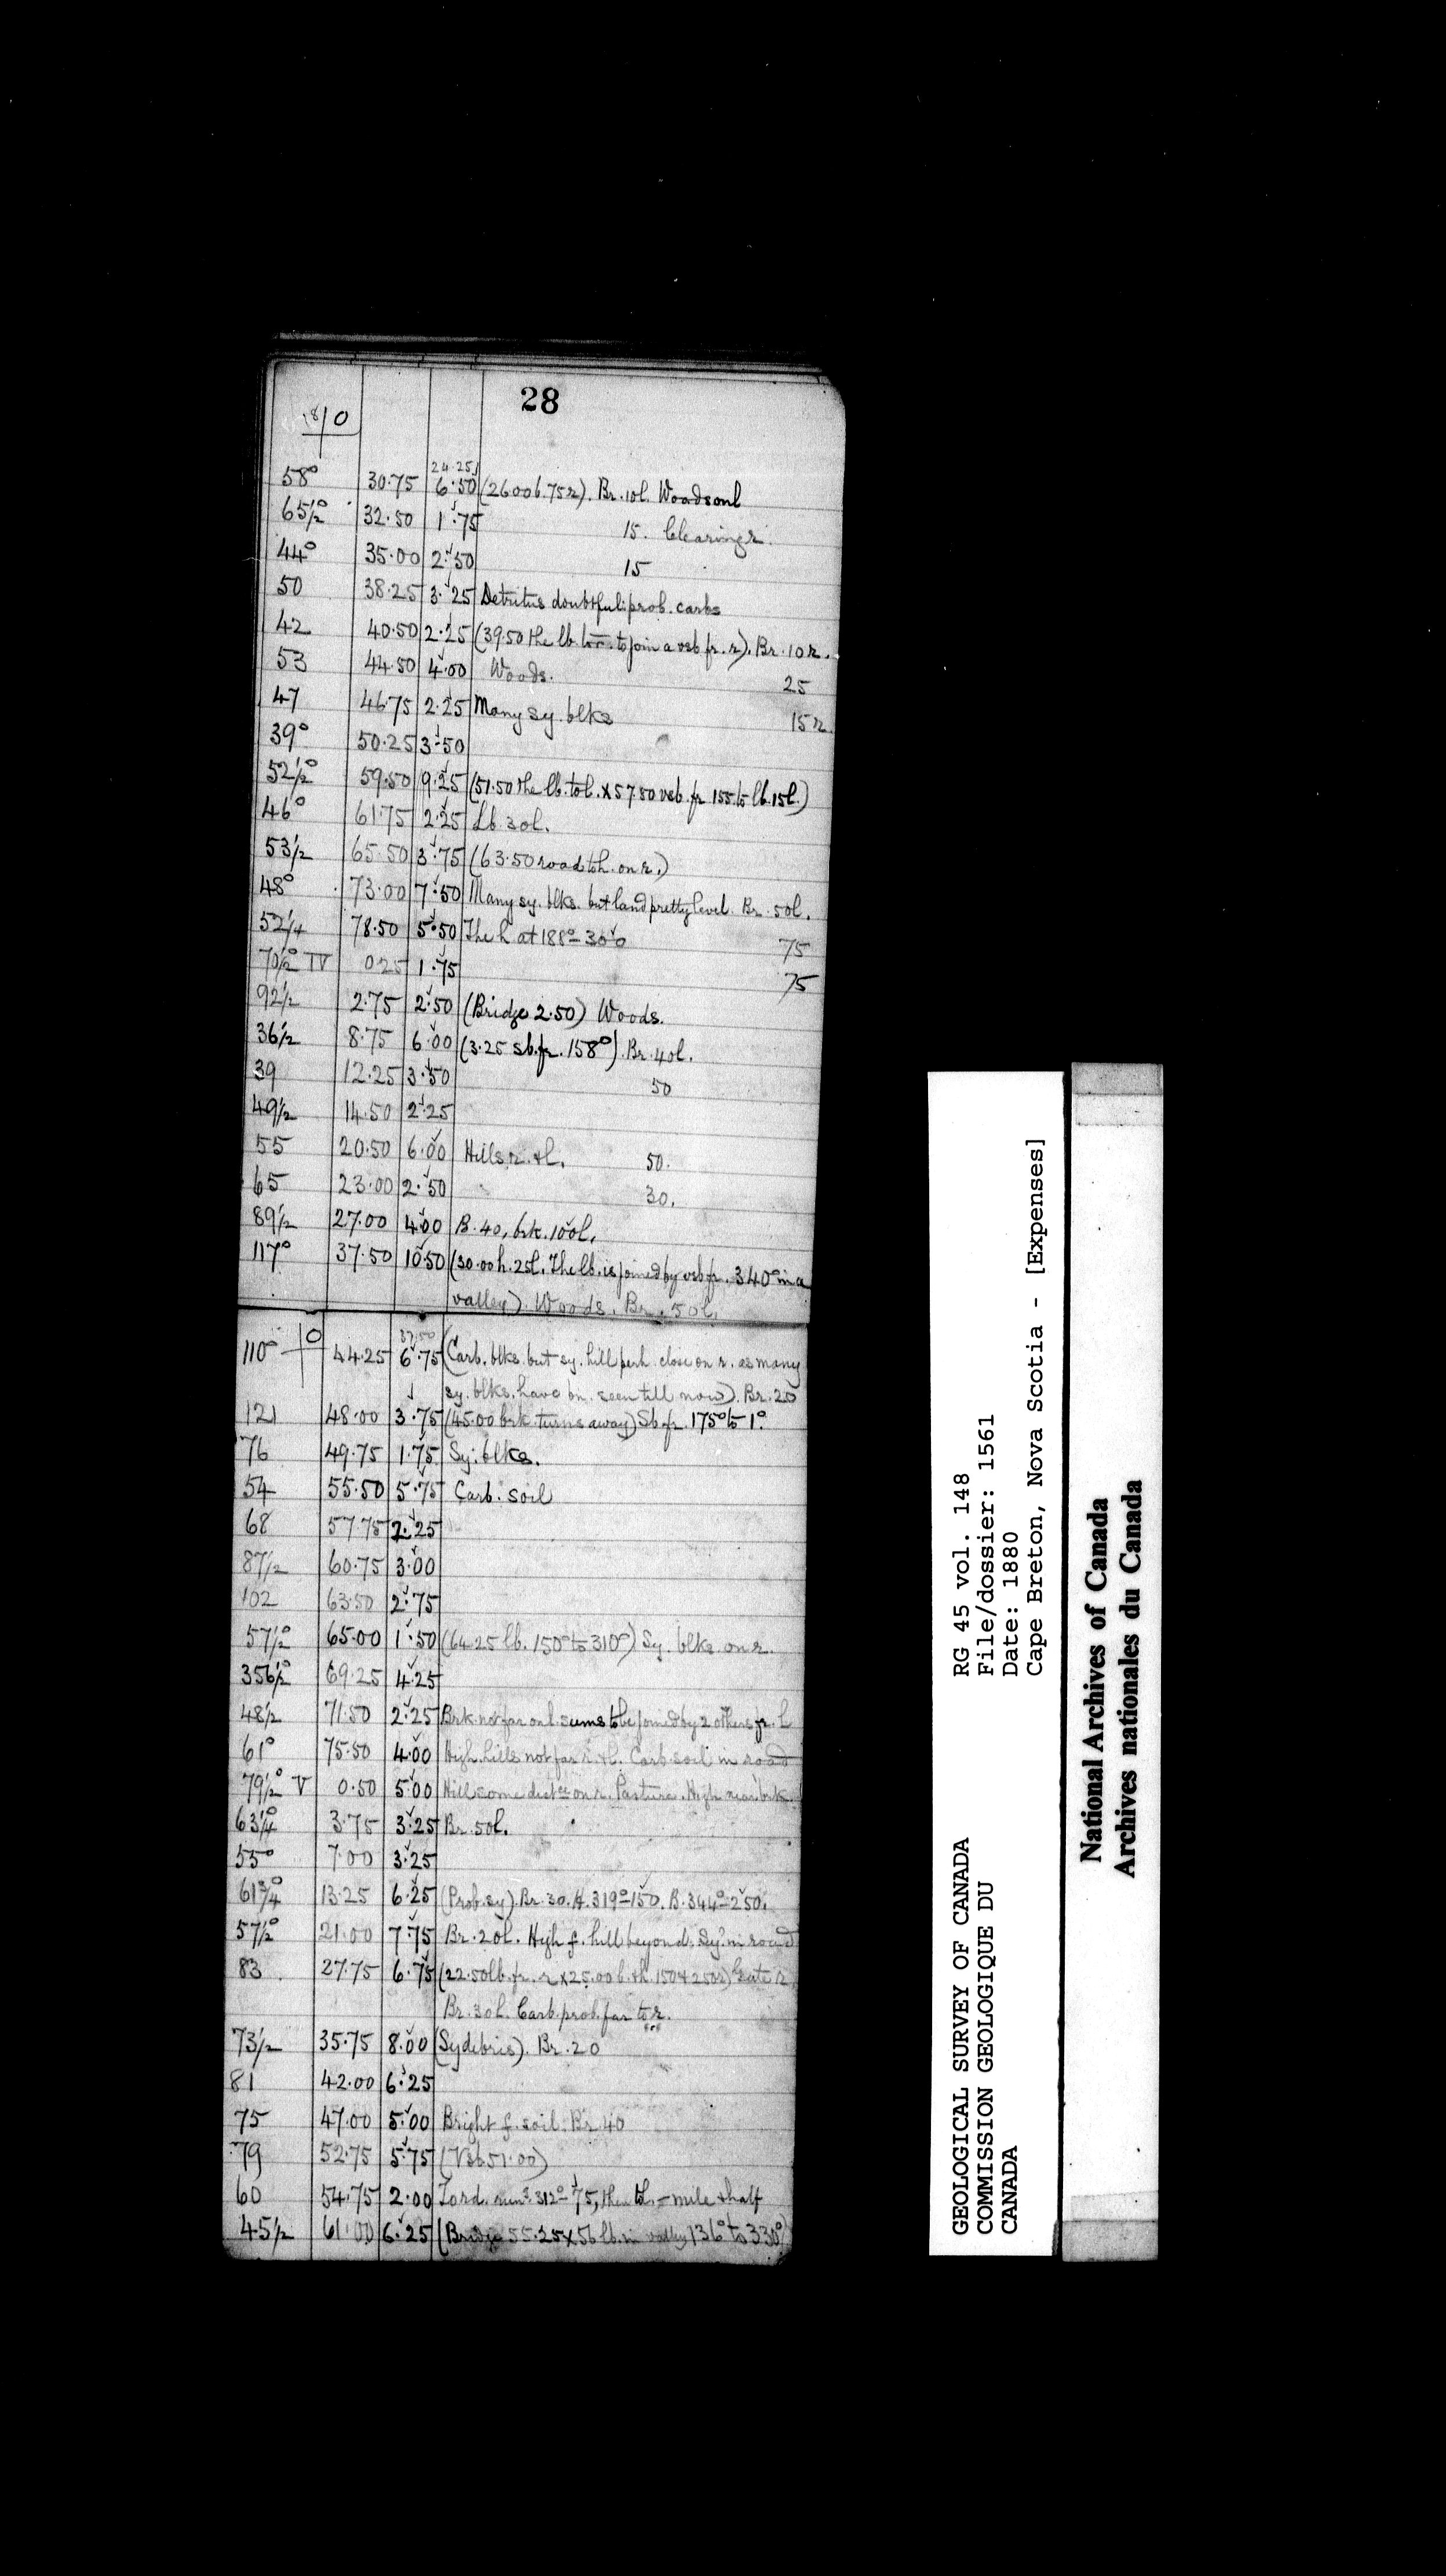 28
18|0
24.25
58° 30.75 6.50 (26.00 b. 75 r). Br. 10 l. Woods on l
65½° 32.50 1.75 15. Clearing r.
44° 35.00 2.50 15
50 38.25 3.25 Detritus doubtful: prob. carbs
42 40.50 2.25 (39.50 the lb. to r. to join a vsb fr. r). Br. 10 r.
53 44.50 4.00 Woods. 25
47 46.75 2.25 Many sy. blks 15 r.
39° 50.25 3.50
52½° 59.50 9.25 (51.50 the lb. to l. × 57.50 vsb. fr 155. to lb. 15 l.)
46° 61.75 2.25 Lb. 30 l.
53½ 65.50 3.75 (63.50 road to h. on r.)
48° 73.00 7.50 Many sy. blks. but land pretty level. Br. 50 l.
52¼ 78.50 5.50 The h at 188° - 300 75
70½° IV 0.25 1.75 75
92½ 2.75 2.50 (Bridge 2.50) Woods.
36½ 8.75 6.00 (3.25 sb. fr. 158°). Br. 40 l.
39 12.25 3.50 50
49½ 14.50 2.25
55 20.50 6.00 Hills r. & l. 50.
65 23.00 2.50 30.
89½ 27.00 4.00 B. 40, brk. 100 l.
117° 37.50 10.50 (30.00 h. 25 l. The lb. is joined by vsb fr. 340° in a
valley) Woods. Br. 50 l.
0 37.50
110° 44.25 6.75 (Carb. blks. but sy. hill perh. close on r. as many
sy. blks. have bn. seen till now). Br. 20
121 48.00 3.75 (45.00 brk. turns away) Sb. fr. 175° to 1°
76 49.75 1.75 Sy. blks.
54 55.50 5.75 Carb. soil
68 57.75 2.25
87½ 60.75 3.00
102 63.50 2.75
57½° 65.00 1.50 (64.25 lb. 150° to 310°) Sy. blks. on r.
356½° 69.25 4.25
48½ 71.50 2.25 Brk. not far on l. seems to be joined by 2 others fr. l
61° 75.50 4.00 High hills not far r. & l. Carb. soil in road
79½° V 0.50 5.00 Hill some distce on r. Pasture. High near brk.
63¼° 3.75 3.25 Br. 50 l.
55° 7.00 3.25
61¾° 13.25 6.25 (Prob. sy). Br. 30. H. 319° - 150. B. 344° - 250.
57½° 21.00 7.75 Br. 20 l. High f. hill beyond. Sy. in road
83 27.75 6.75 (22.50 lb. fr. r × 25.00 b. & h. 150 & 250 r) Gate r.
Br. 30 l. Carb. prob. far to r.
73½ 35.75 8.00 (Sy debris). Br. 20
81 42.00 6.25
75 47.00 5.00 Bright f. soil. Br 40
79 52.75 5.75 (Vsb 51.00)
60 54.75 2.00 312° - 75, then - mile & half
45½ 61.00 6.25 (Bridge 55.25 × 56 lb. in valley 136° to 330°)
GEOLOGICAL SURVEY OF CANADA
COMMISSION GEOLOGIQUE DU
CANADA
RG 45 vol. 148
File/dossier: 1561
Date: 1880
Cape Breton, Nova Scotia - [Expenses]
National Archives of Canada
Archives nationales du Canada